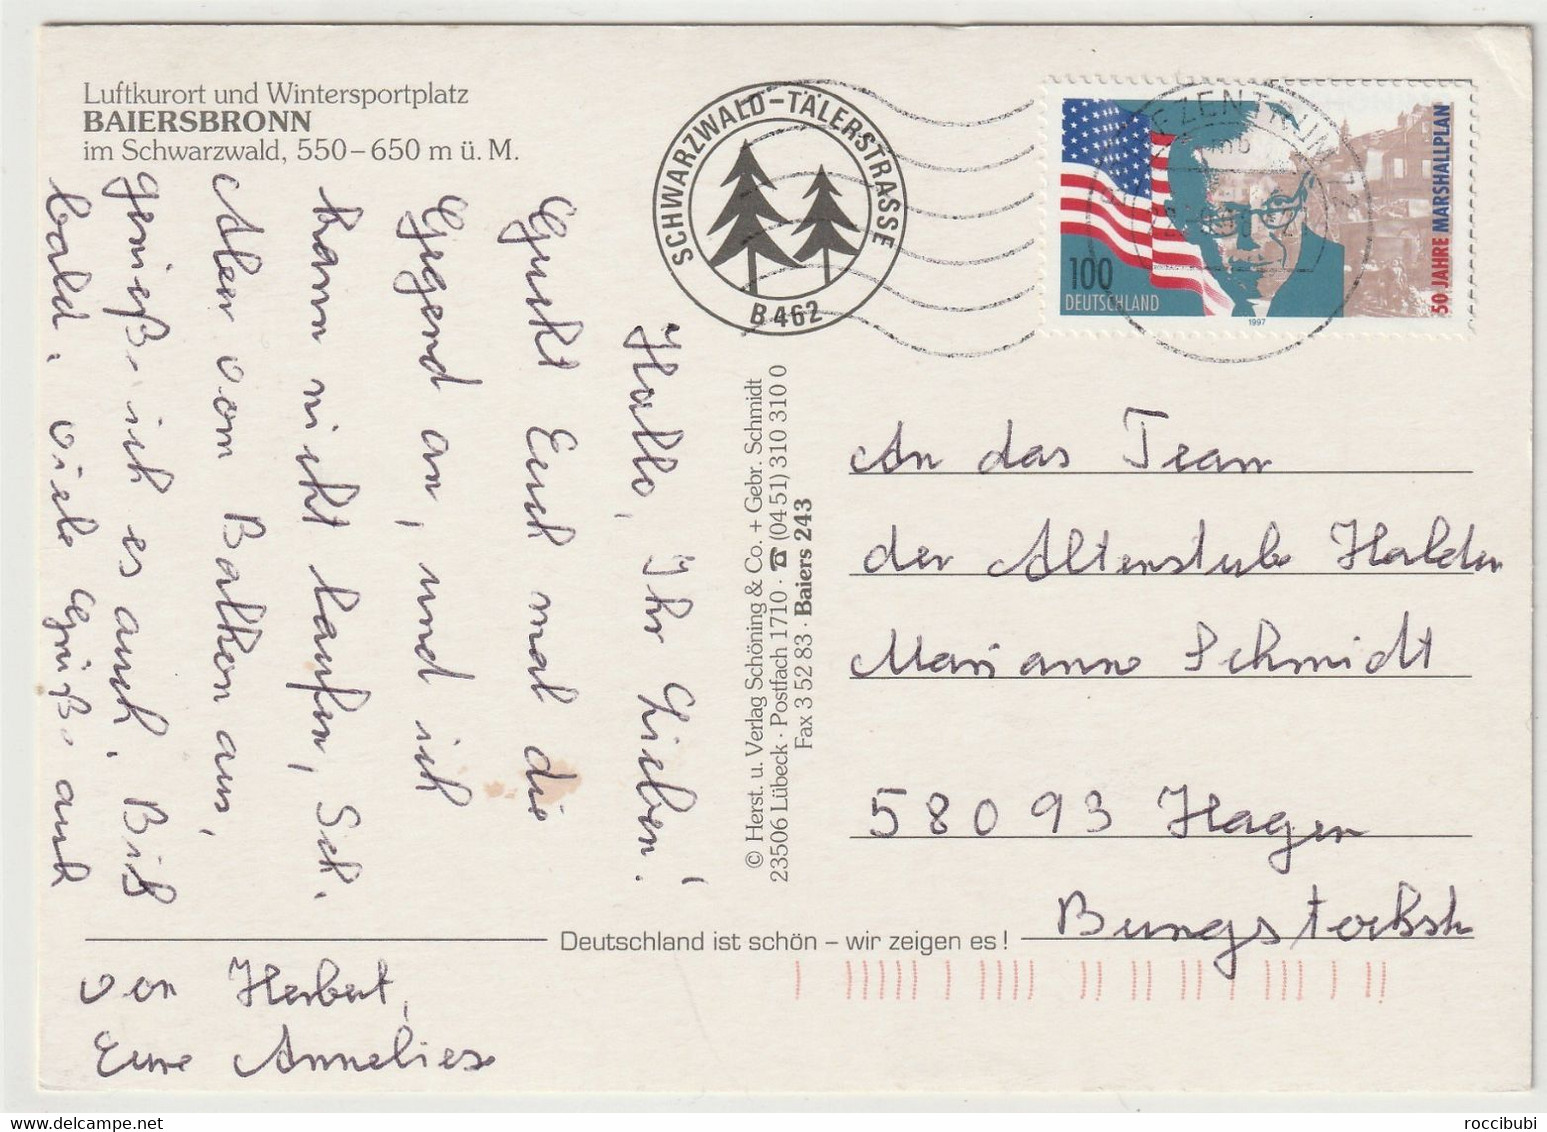 Luftkurort und Wintersportplatz
BAIERSBRONN
im Schwarzwald, 550–650 m ü. M.
SCHWARZWALD-TÄLERSTRASSE
B 462
EZENTRUM 72
mb
100
DEUTSCHLAND
1997
50 JAHRE MARSHALLPLAN
Hallo, Ihr Lieben!
Guckt Euch mal die
Gegend an, und ich
kann nicht laufen, Sch.
Aber vom Balkon aus,
genieße ich es auch. Biß
bald. Viele Grüße auch
von Herbert,
Eure Annelies
© Herst. u. Verlag Schöning & Co. + Gebr. Schmidt
23506 Lübeck · Postfach 1710 · ☎ (04 51) 310 310 0
Fax 3 52 83 · Baiers 243
An das Team
der Altenstube Halden
Marianne Schmidt
58093 Hagen
Bungstockstr
Deutschland ist schön – wir zeigen es!
roccibubi